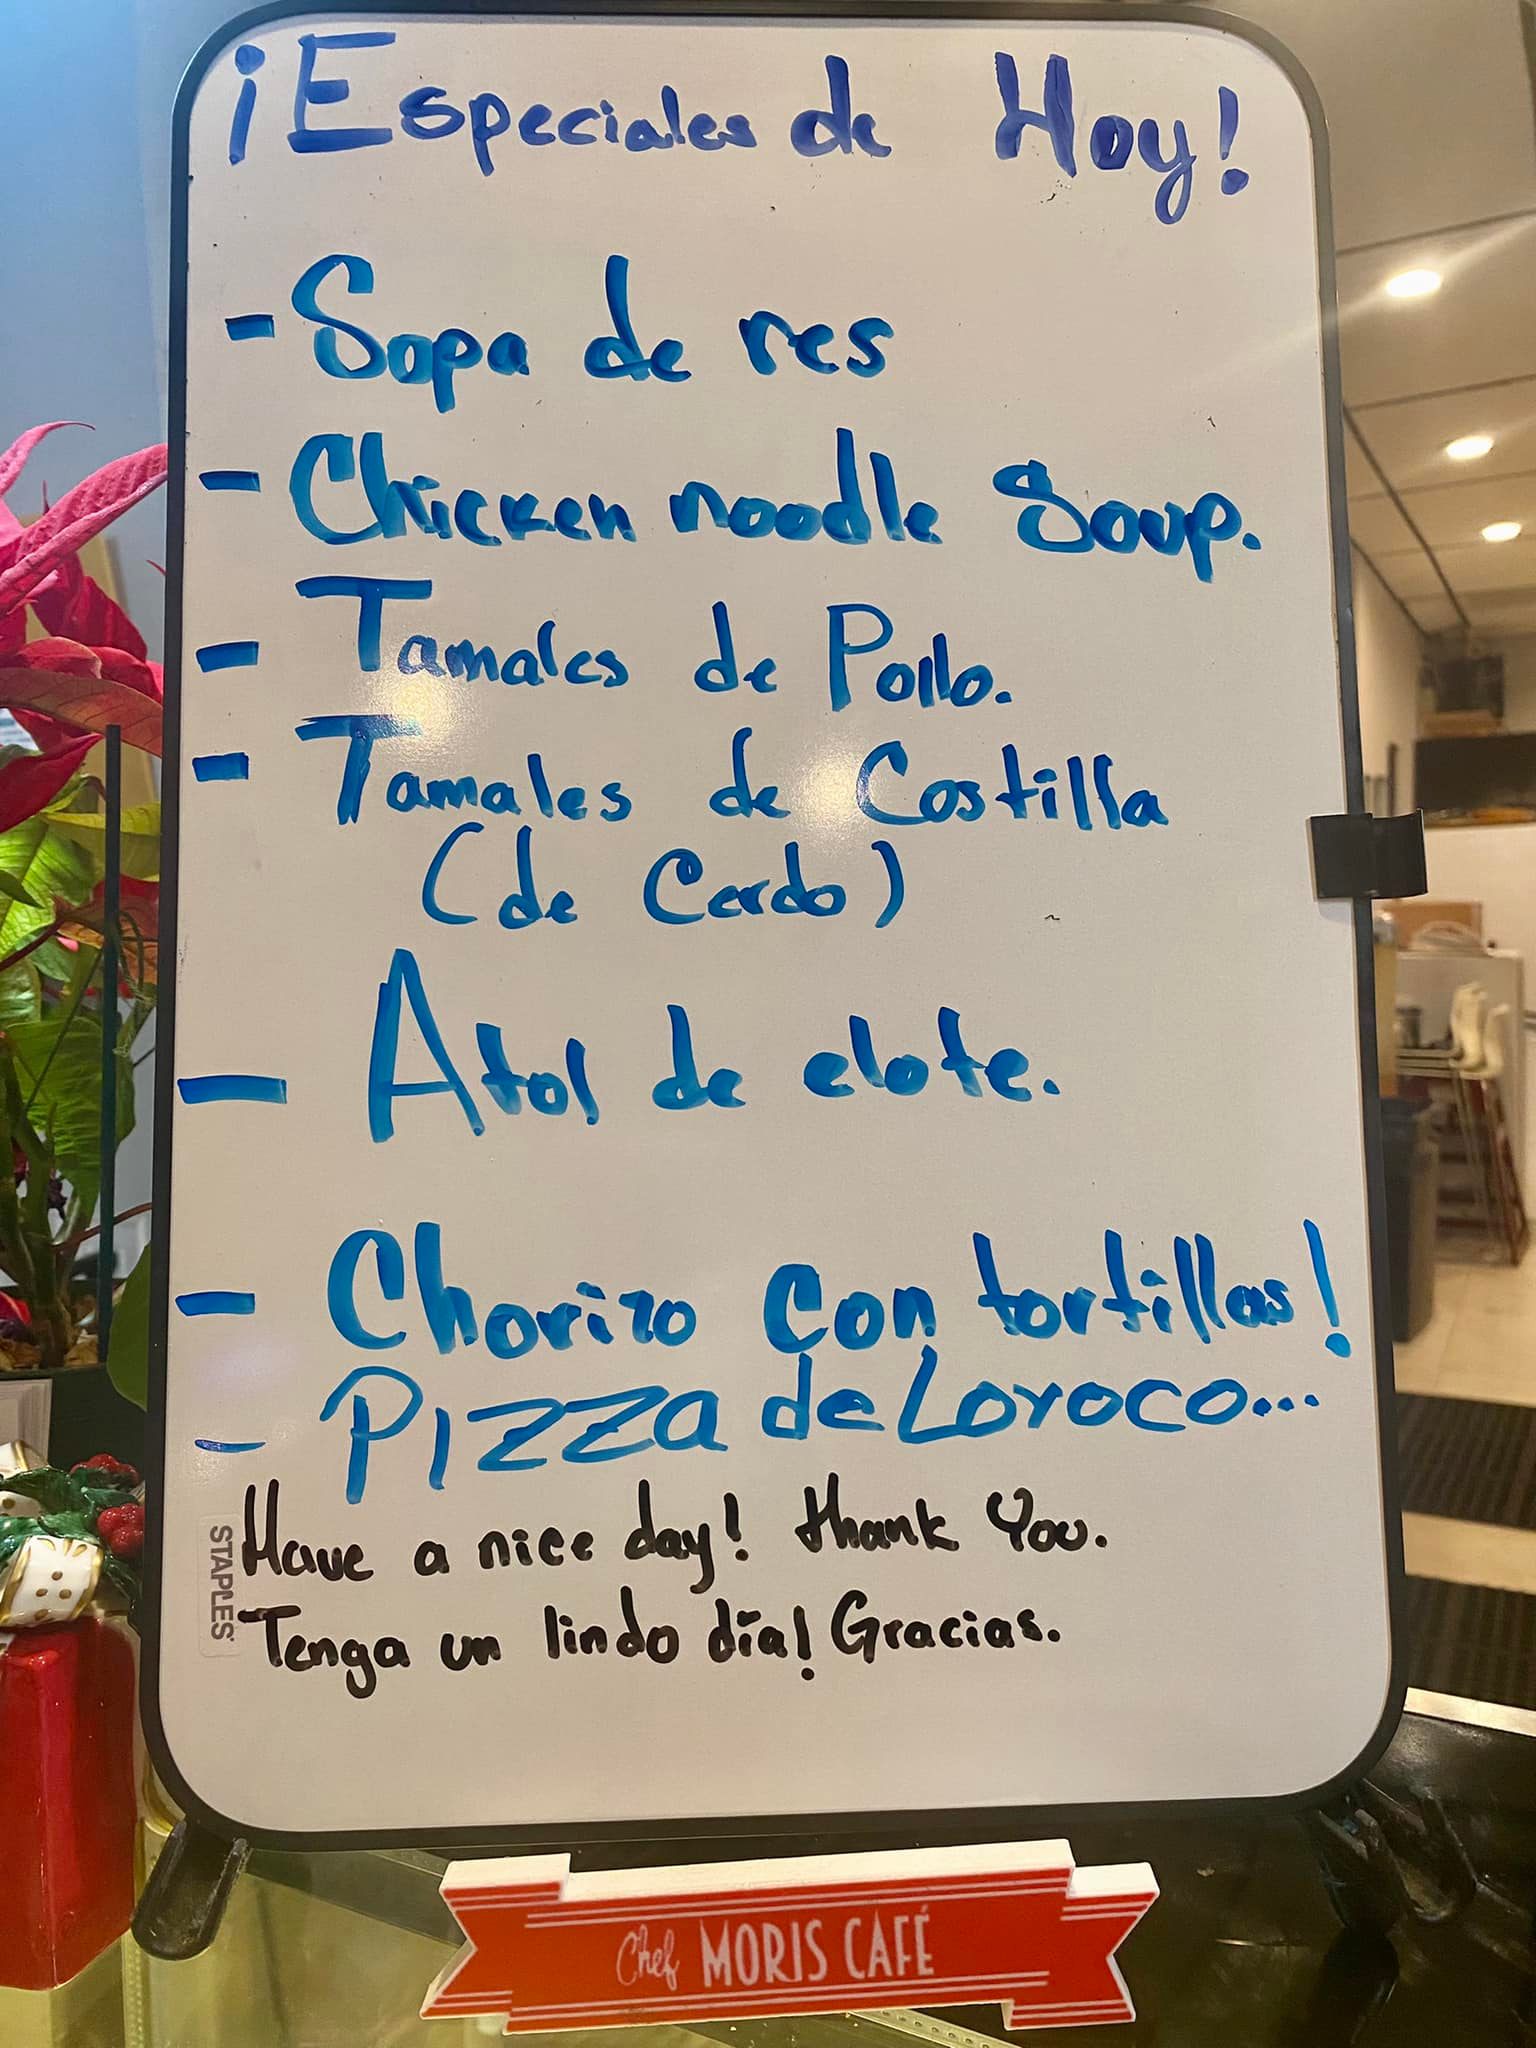 ¡Especiales de Hoy!
- Sopa de res
- Chicken noodle Soup.
- Tamales de Pollo.
- Tamales de Costilla
(de Cerdo)
- Atol de elote.
- Chorizo con tortillas!
- Pizza de Loroco...
Have a nice day! thank You.
Tenga un lindo día! Gracias.
STAPLES
Chef MORIS CAFÉ